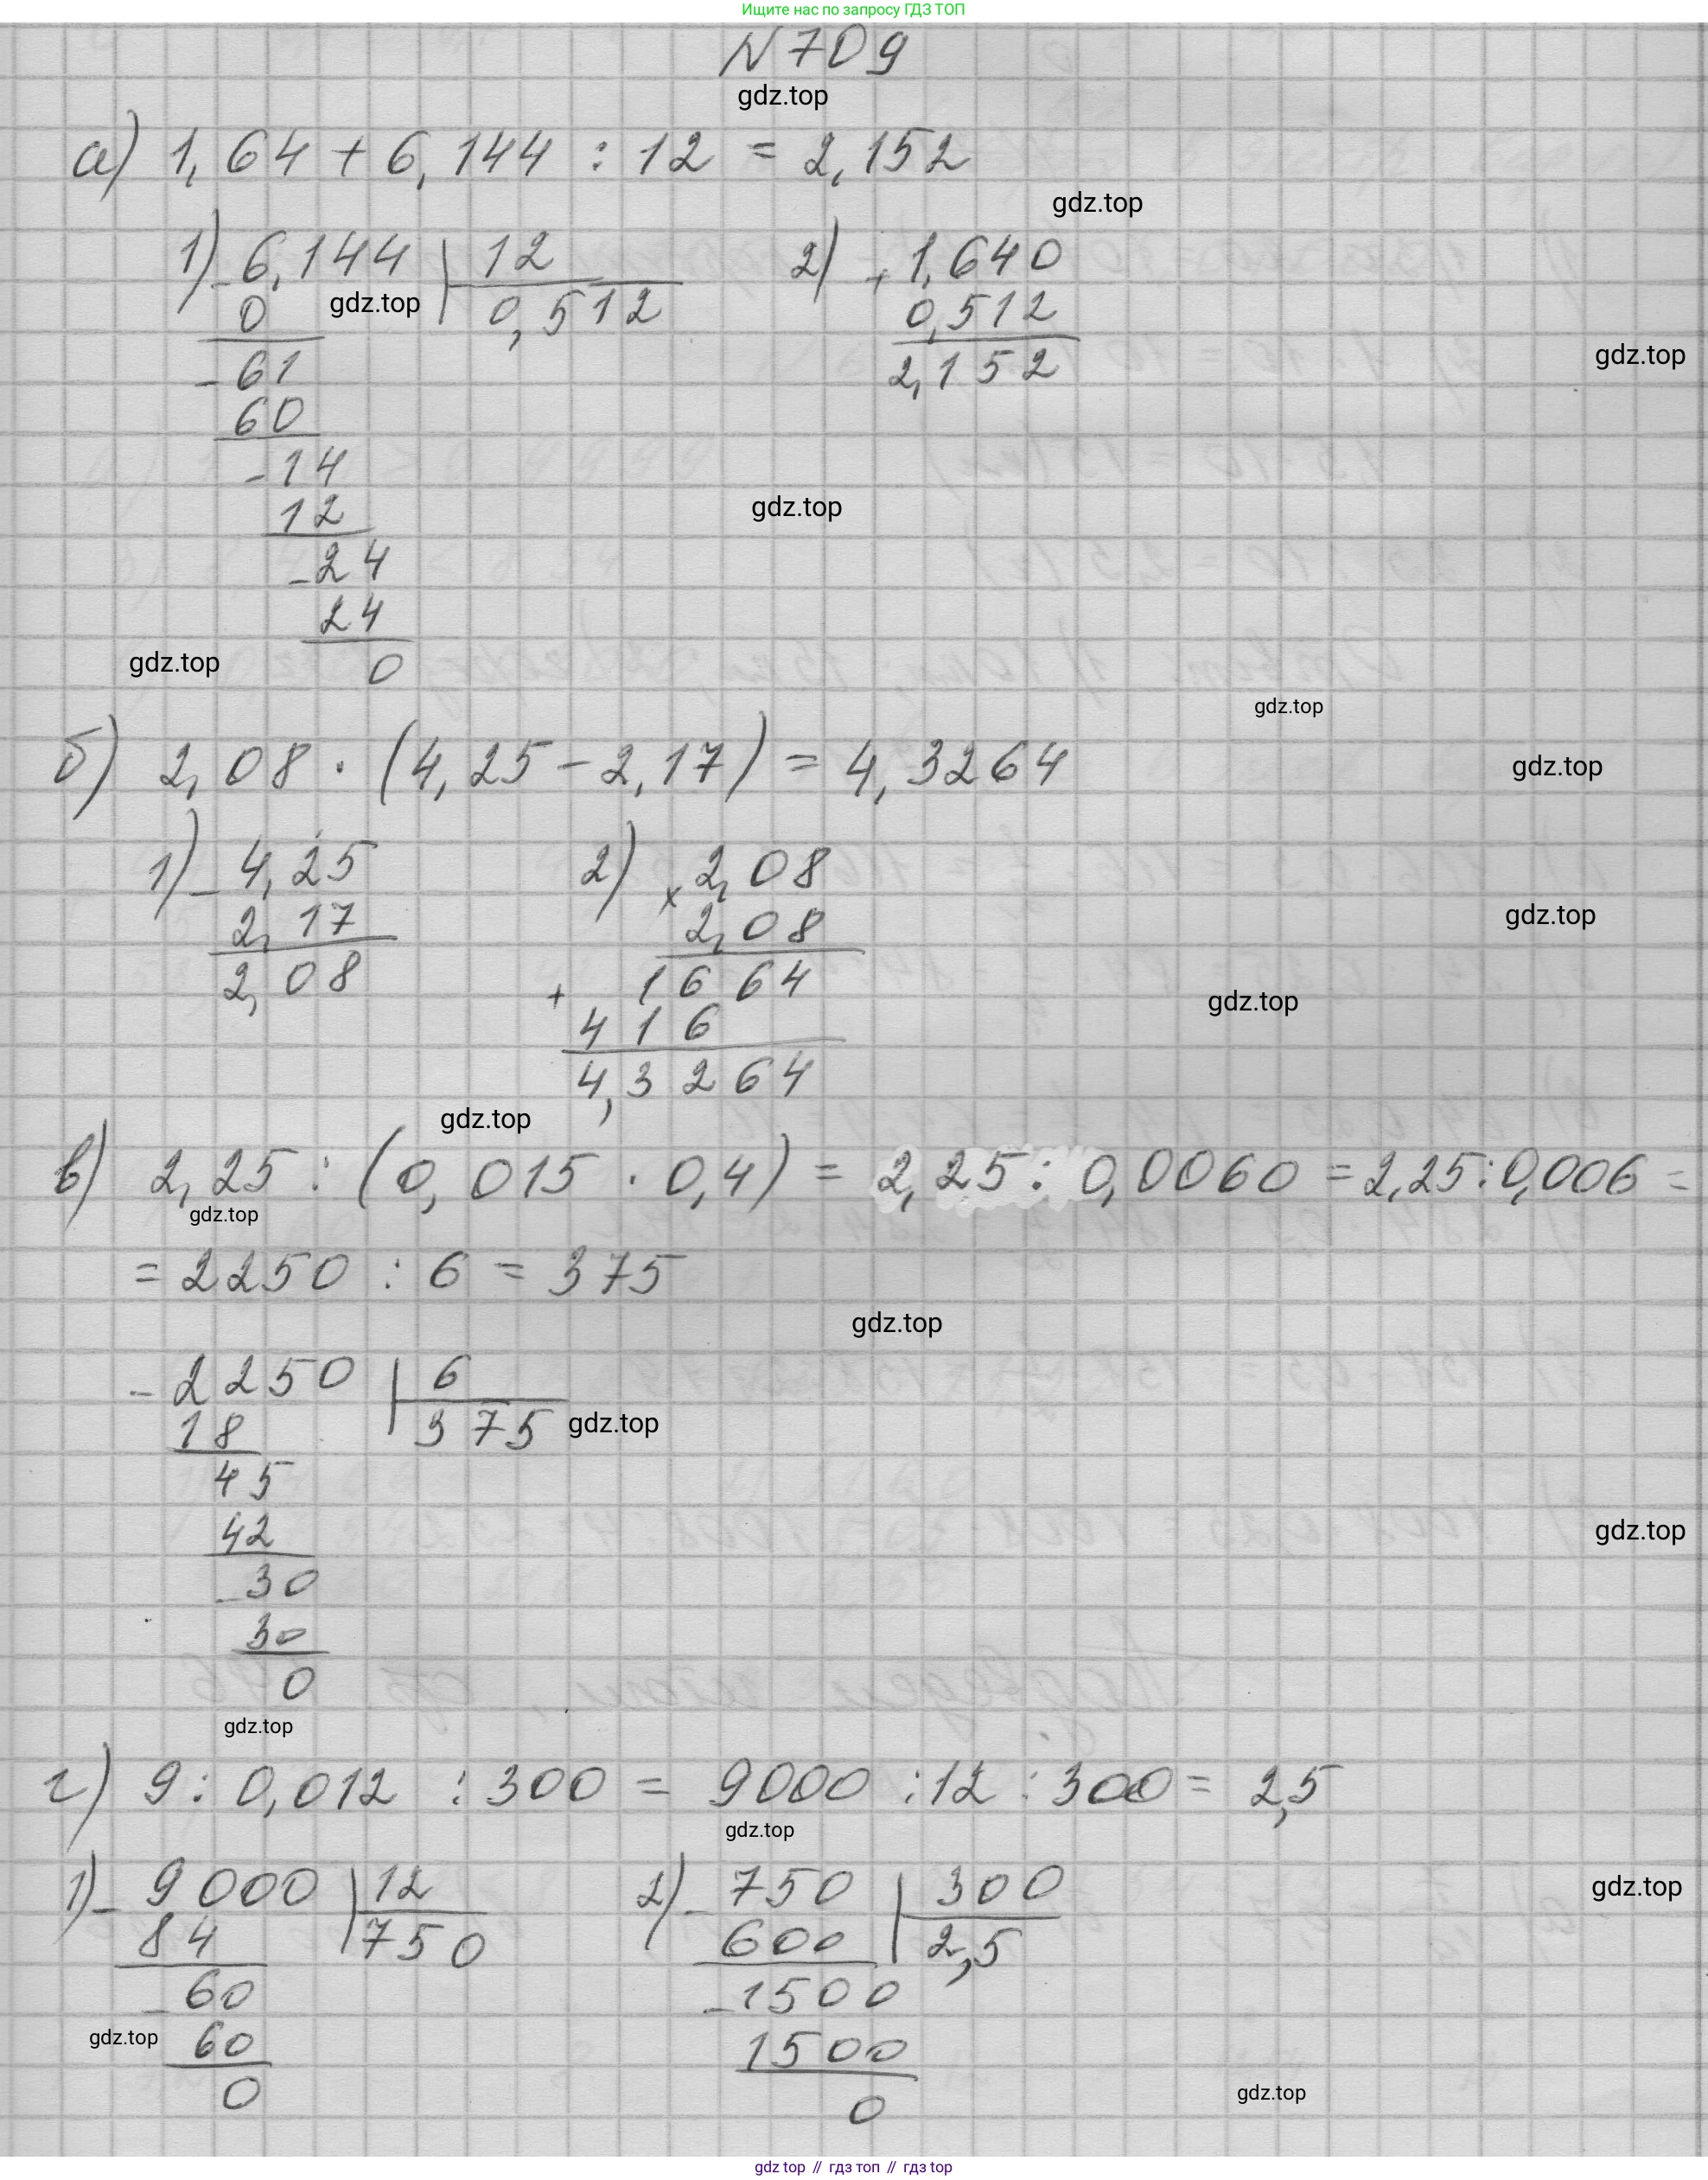 Ищите нас по запросу ГДЗ ТОП
N709
gdz.top
а) 1,64 + 6,144 : 12 = 2,152
gdz.top
1) - 6,144 | 12 2) + 1,640
0 gdz.top 0,512 0,512
gdz.top
- 61 2,152
60
- 14
12 gdz.top
- 24
24
gdz.top 0
gdz.top
б) 2,08 · (4,25 - 2,17) = 4,3264
gdz.top
1) - 4,25 2) × 2,08
2,17 2,08
gdz.top
2,08 + 1664
gdz.top
416
4,3264
gdz.top
в) 2,25 : (0,015 · 0,4) = 2,25 : 0,0060 = 2,25 : 0,006 =
gdz.top
= 2250 : 6 = 375
gdz.top
- 2250 | 6
18 375 gdz.top
45
42 gdz.top
- 30
30
0
gdz.top
г) 9 : 0,012 : 300 = 9000 : 12 : 300 = 2,5
gdz.top
1) - 9000 | 12 2) - 750 | 300 gdz.top
84 750 600 2,5
- 60 - 1500
gdz.top 60 1500
0 0
gdz.top
gdz top // гдз топ // гдз top